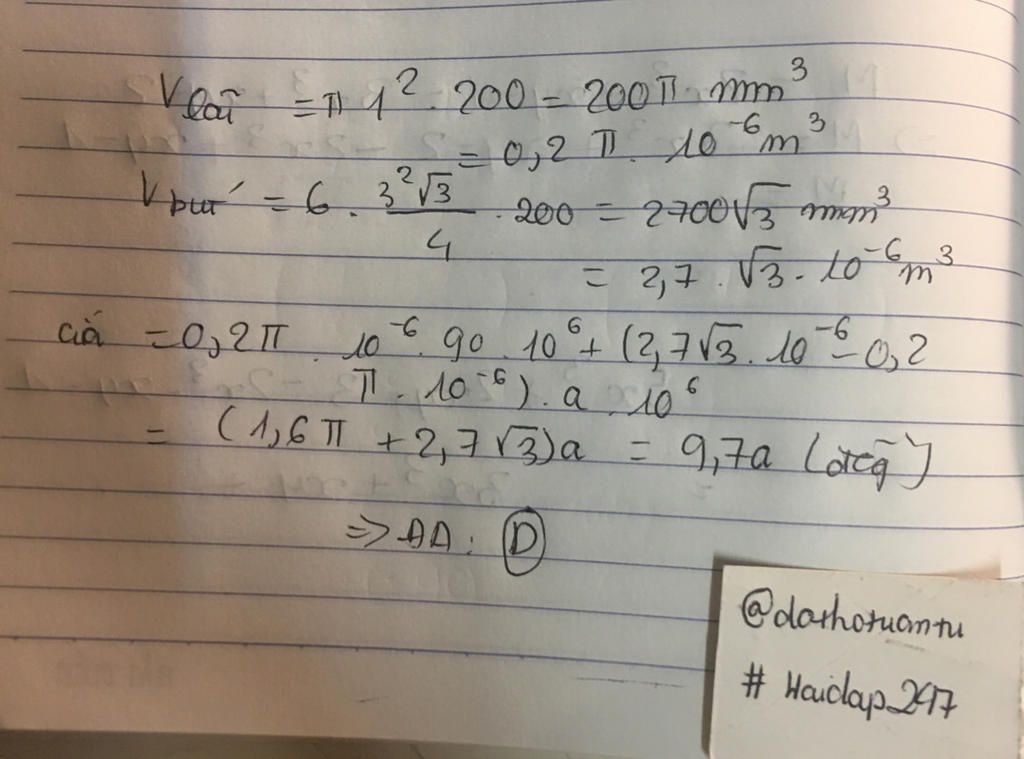 V lõi = π 1². 200 = 200π mm³
= 0,2 π. 10⁻⁶m³
V bút = 6 . 3²√3/4 . 200 = 2700√3 mm³
= 2,7 . √3 . 10⁻⁶m³
giá = 0,2π . 10⁻⁶. 9a . 10⁶ + (2,7√3 . 10⁻⁶ - 0,2
π . 10⁻⁶) . a . 10⁶
= (1,6π + 2,7√3)a = 9,7a (đồng)
=> ĐA : D
@dathotuantu
# Haidap_247